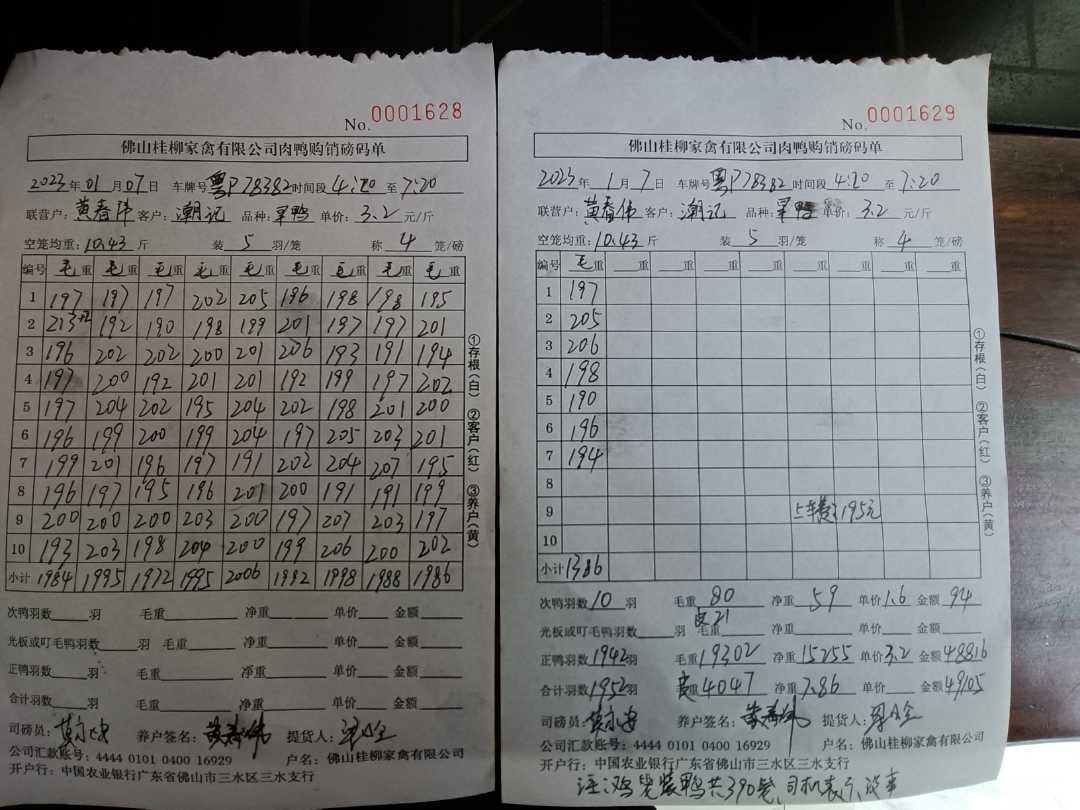 No. 0001628
佛山桂柳家禽有限公司肉鸭购销磅码单
2023年01月07日 车牌号粤P78382时间段4:20至7:20
联营户:黄春伟 客户:潮记 品种:旱鸭 单价:3.2元/斤
空笼均重:10.43斤 装5羽/笼 称4笼/磅
编号 毛重 毛重 毛重 毛重 毛重 毛重 毛重 毛重 毛重
1 197 197 197 202 205 196 198 198 195
2 213 192 190 198 199 201 197 197 201
3 196 202 202 200 201 206 193 191 194
4 197 200 192 201 201 192 199 197 202
5 197 204 202 195 204 202 198 201 200
6 196 199 200 199 204 197 205 203 201
7 199 201 196 197 191 202 204 207 195
8 196 197 195 196 201 200 191 191 199
9 200 200 200 203 200 197 207 203 197
10 193 203 198 204 200 199 206 200 202
小计 1984 1995 1972 1995 2006 1992 1998 1988 1986
①存根(白) ②客户(红) ③养户(黄)
次鸭羽数 羽 毛重 净重 单价 金额
光板或叮毛鸭羽数 羽 毛重 净重 单价 金额
正鸭羽数 羽 毛重 净重 单价 金额
合计羽数 羽 毛重 净重 单价 金额
司磅员: 养户签名:黄春伟 提货人:
公司汇款账号:4444 0101 0400 16929 户名:佛山桂柳家禽有限公司
开户行:中国农业银行广东省佛山市三水区三水支行
No. 0001629
佛山桂柳家禽有限公司肉鸭购销磅码单
2023年1月7日 车牌号粤P78382时间段4:20至7:20
联营户:黄春伟 客户:潮记 品种:旱鸭 单价:3.2元/斤
空笼均重:10.43斤 装5羽/笼 称4笼/磅
编号 毛重 重 重 重 重 重 重 重 重
1 197
2 205
3 206
4 198
5 190
6 196
7 194
8
9 上车费:195元
10
小计 1386
①存根(白) ②客户(红) ③养户(黄)
次鸭羽数10羽 毛重80 净重59 单价1.6 金额94
皮21
光板或叮毛鸭羽数 羽 毛重 净重 单价 金额
正鸭羽数1942羽 毛重19302 净重15255 单价3.2 金额48816
合计羽数1952羽 皮重4047 净重7.86 单价 金额49105
司磅员: 养户签名:黄春伟 提货人:
公司汇款账号:4444 0101 0400 16929 户名:佛山桂柳家禽有限公司
开户行:中国农业银行广东省佛山市三水区三水支行
注:鸡笼装鸭共390笼,司机表示没事